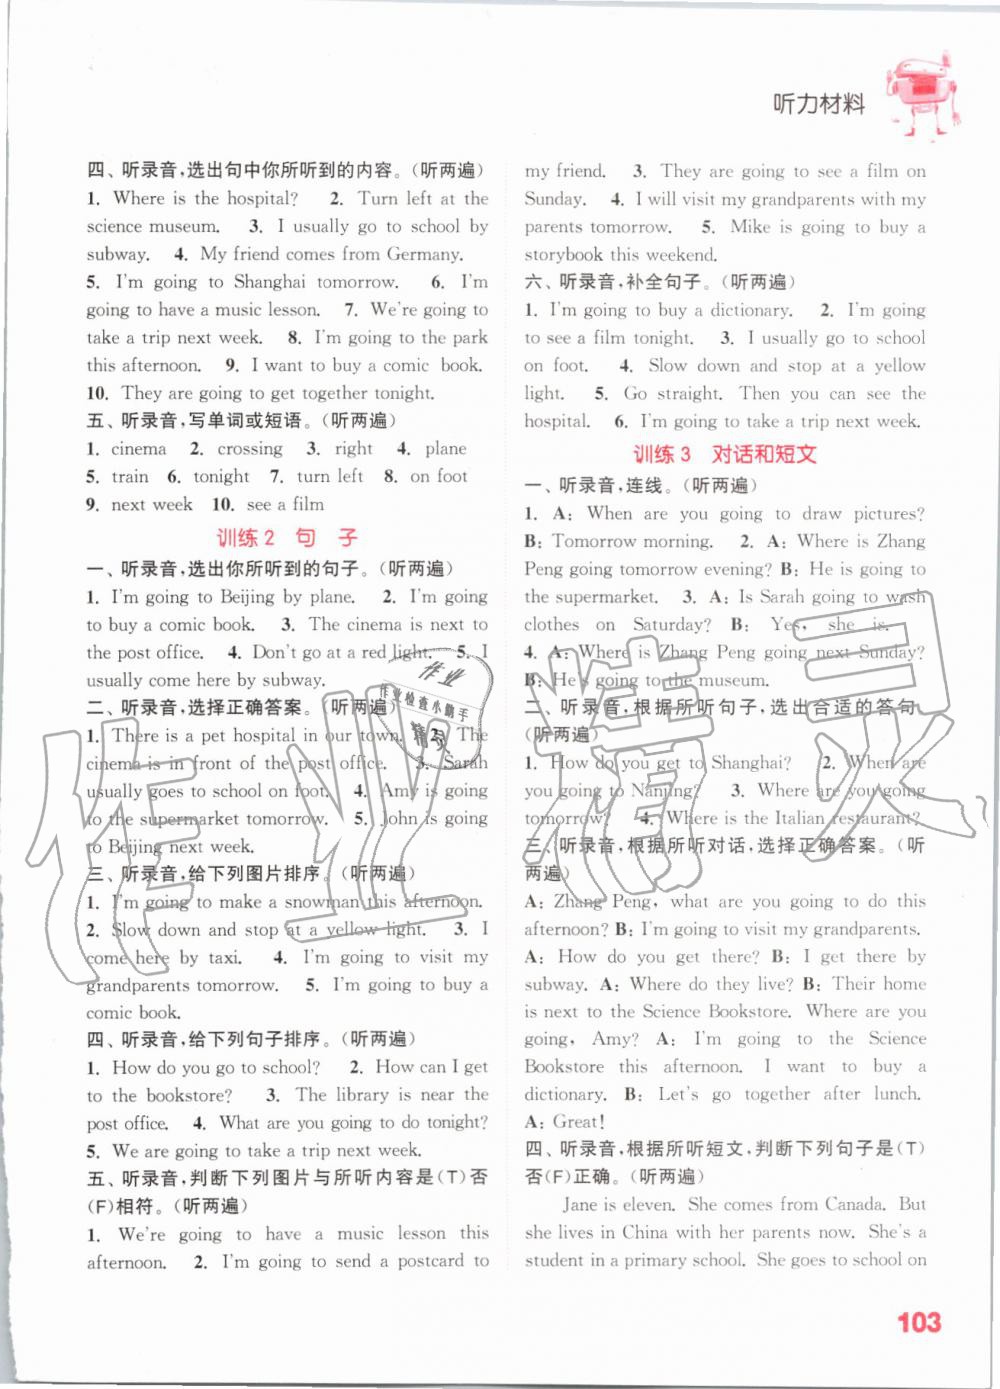 听力材料
四、听录音,选出句中你所听到的内容。(听两遍)
1. Where is the hospital? 2. Turn left at the
science museum. 3. I usually go to school by
subway. 4. My friend comes from Germany.
5. I'm going to Shanghai tomorrow. 6. I'm
going to have a music lesson. 7. We're going to
take a trip next week. 8. I'm going to the park
this afternoon. 9. I want to buy a comic book.
10. They are going to get together tonight.
五、听录音,写单词或短语。(听两遍)
1. cinema 2. crossing 3. right 4. plane
5. train 6. tonight 7. turn left 8. on foot
9. next week 10. see a film
训练2 句 子
一、听录音,选出你所听到的句子。(听两遍)
1. I'm going to Beijing by plane. 2. I'm going
to buy a comic book. 3. The cinema is next to
the post office. 4. Don't go at a red light. 5. I
usually come here by subway.
二、听录音,选择正确答案。(听两遍)
1. There is a pet hospital in our town. 2. The
cinema is in front of the post office. 3. Sarah
usually goes to school on foot. 4. Amy is going
to the supermarket tomorrow. 5. John is going
to Beijing next week.
三、听录音,给下列图片排序。(听两遍)
1. I'm going to make a snowman this afternoon.
2. Slow down and stop at a yellow light. 3. I
come here by taxi. 4. I'm going to visit my
grandparents tomorrow. 5. I'm going to buy a
comic book.
四、听录音,给下列句子排序。(听两遍)
1. How do you go to school? 2. How can I get
to the bookstore? 3. The library is near the
post office. 4. What are you going to do tonight?
5. We are going to take a trip next week.
五、听录音,判断下列图片与所听内容是(T)否
(F)相符。(听两遍)
1. We're going to have a music lesson this
afternoon. 2. I'm going to send a postcard to
my friend. 3. They are going to see a film on
Sunday. 4. I will visit my grandparents with my
parents tomorrow. 5. Mike is going to buy a
storybook this weekend.
六、听录音,补全句子。(听两遍)
1. I'm going to buy a dictionary. 2. I'm going
to see a film tonight. 3. I usually go to school
on foot. 4. Slow down and stop at a yellow
light. 5. Go straight. Then you can see the
hospital. 6. I'm going to take a trip next week.
训练3 对话和短文
一、听录音,连线。(听两遍)
1. A: When are you going to draw pictures?
B: Tomorrow morning. 2. A: Where is Zhang
Peng going tomorrow evening? B: He is going to
the supermarket. 3. A: Is Sarah going to wash
clothes on Saturday? B: Yes, she is.
4. A: Where is Zhang Peng going next Sunday?
B: He's going to the museum.
二、听录音,根据所听句子,选出合适的答句。
(听两遍)
1. How do you get to Shanghai? 2. When are
you going to Nanjing? 3. Where are you going
tomorrow? 4. Where is the Italian restaurant?
三、听录音,根据所听对话,选择正确答案。(听
两遍)
A: Zhang Peng, what are you going to do this
afternoon? B: I'm going to visit my grandparents.
A: How do you get there? B: I get there by
subway. A: Where do they live? B: Their home
is next to the Science Bookstore. Where are you
going, Amy? A: I'm going to the Science
Bookstore this afternoon. I want to buy a
dictionary. B: Let's go together after lunch.
A: Great!
四、听录音,根据所听短文,判断下列句子是(T)
否(F)正确。(听两遍)
Jane is eleven. She comes from Canada. But
she lives in China with her parents now. She's a
student in a primary school. She goes to school on
103
作业精灵
作业
作业检查小助手
精灵